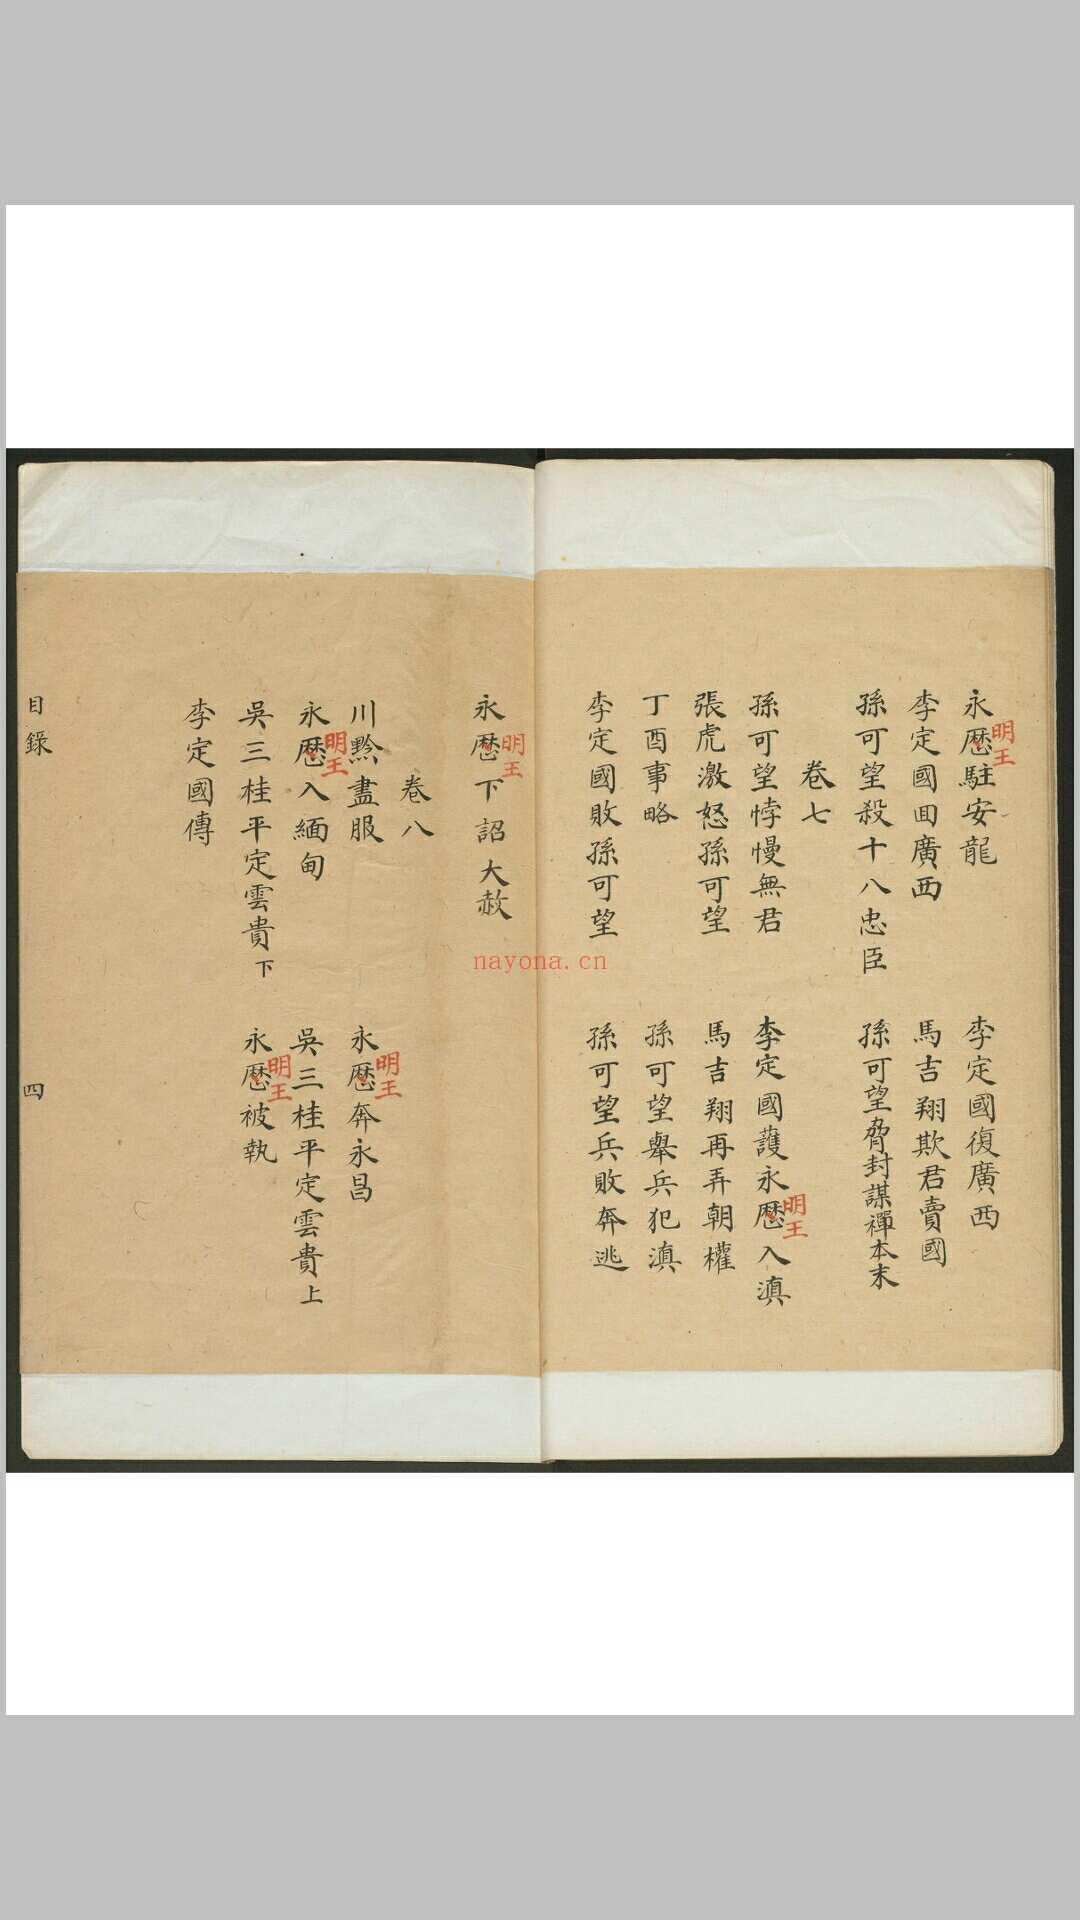 永歴駐安龍
明王
李定國復廣西
李定國回廣西
馬吉翔欺君賣國
孫可望殺十八忠臣
孫可望脅封謀禪本末
卷七
孫可望悖慢無君
李定國護永歴入滇
明王
張虎激怒孫可望
馬吉翔再弄朝權
丁酉事略
孫可望舉兵犯滇
李定國敗孫可望
孫可望兵敗奔逃
永歴下詔大赦
明王
卷八
川黔盡服
永歴奔永昌
明王
永歴入緬甸
明王
吳三桂平定雲貴上
吳三桂平定雲貴下
永歴被執
明王
李定國傳
目錄
四
nayona.cn